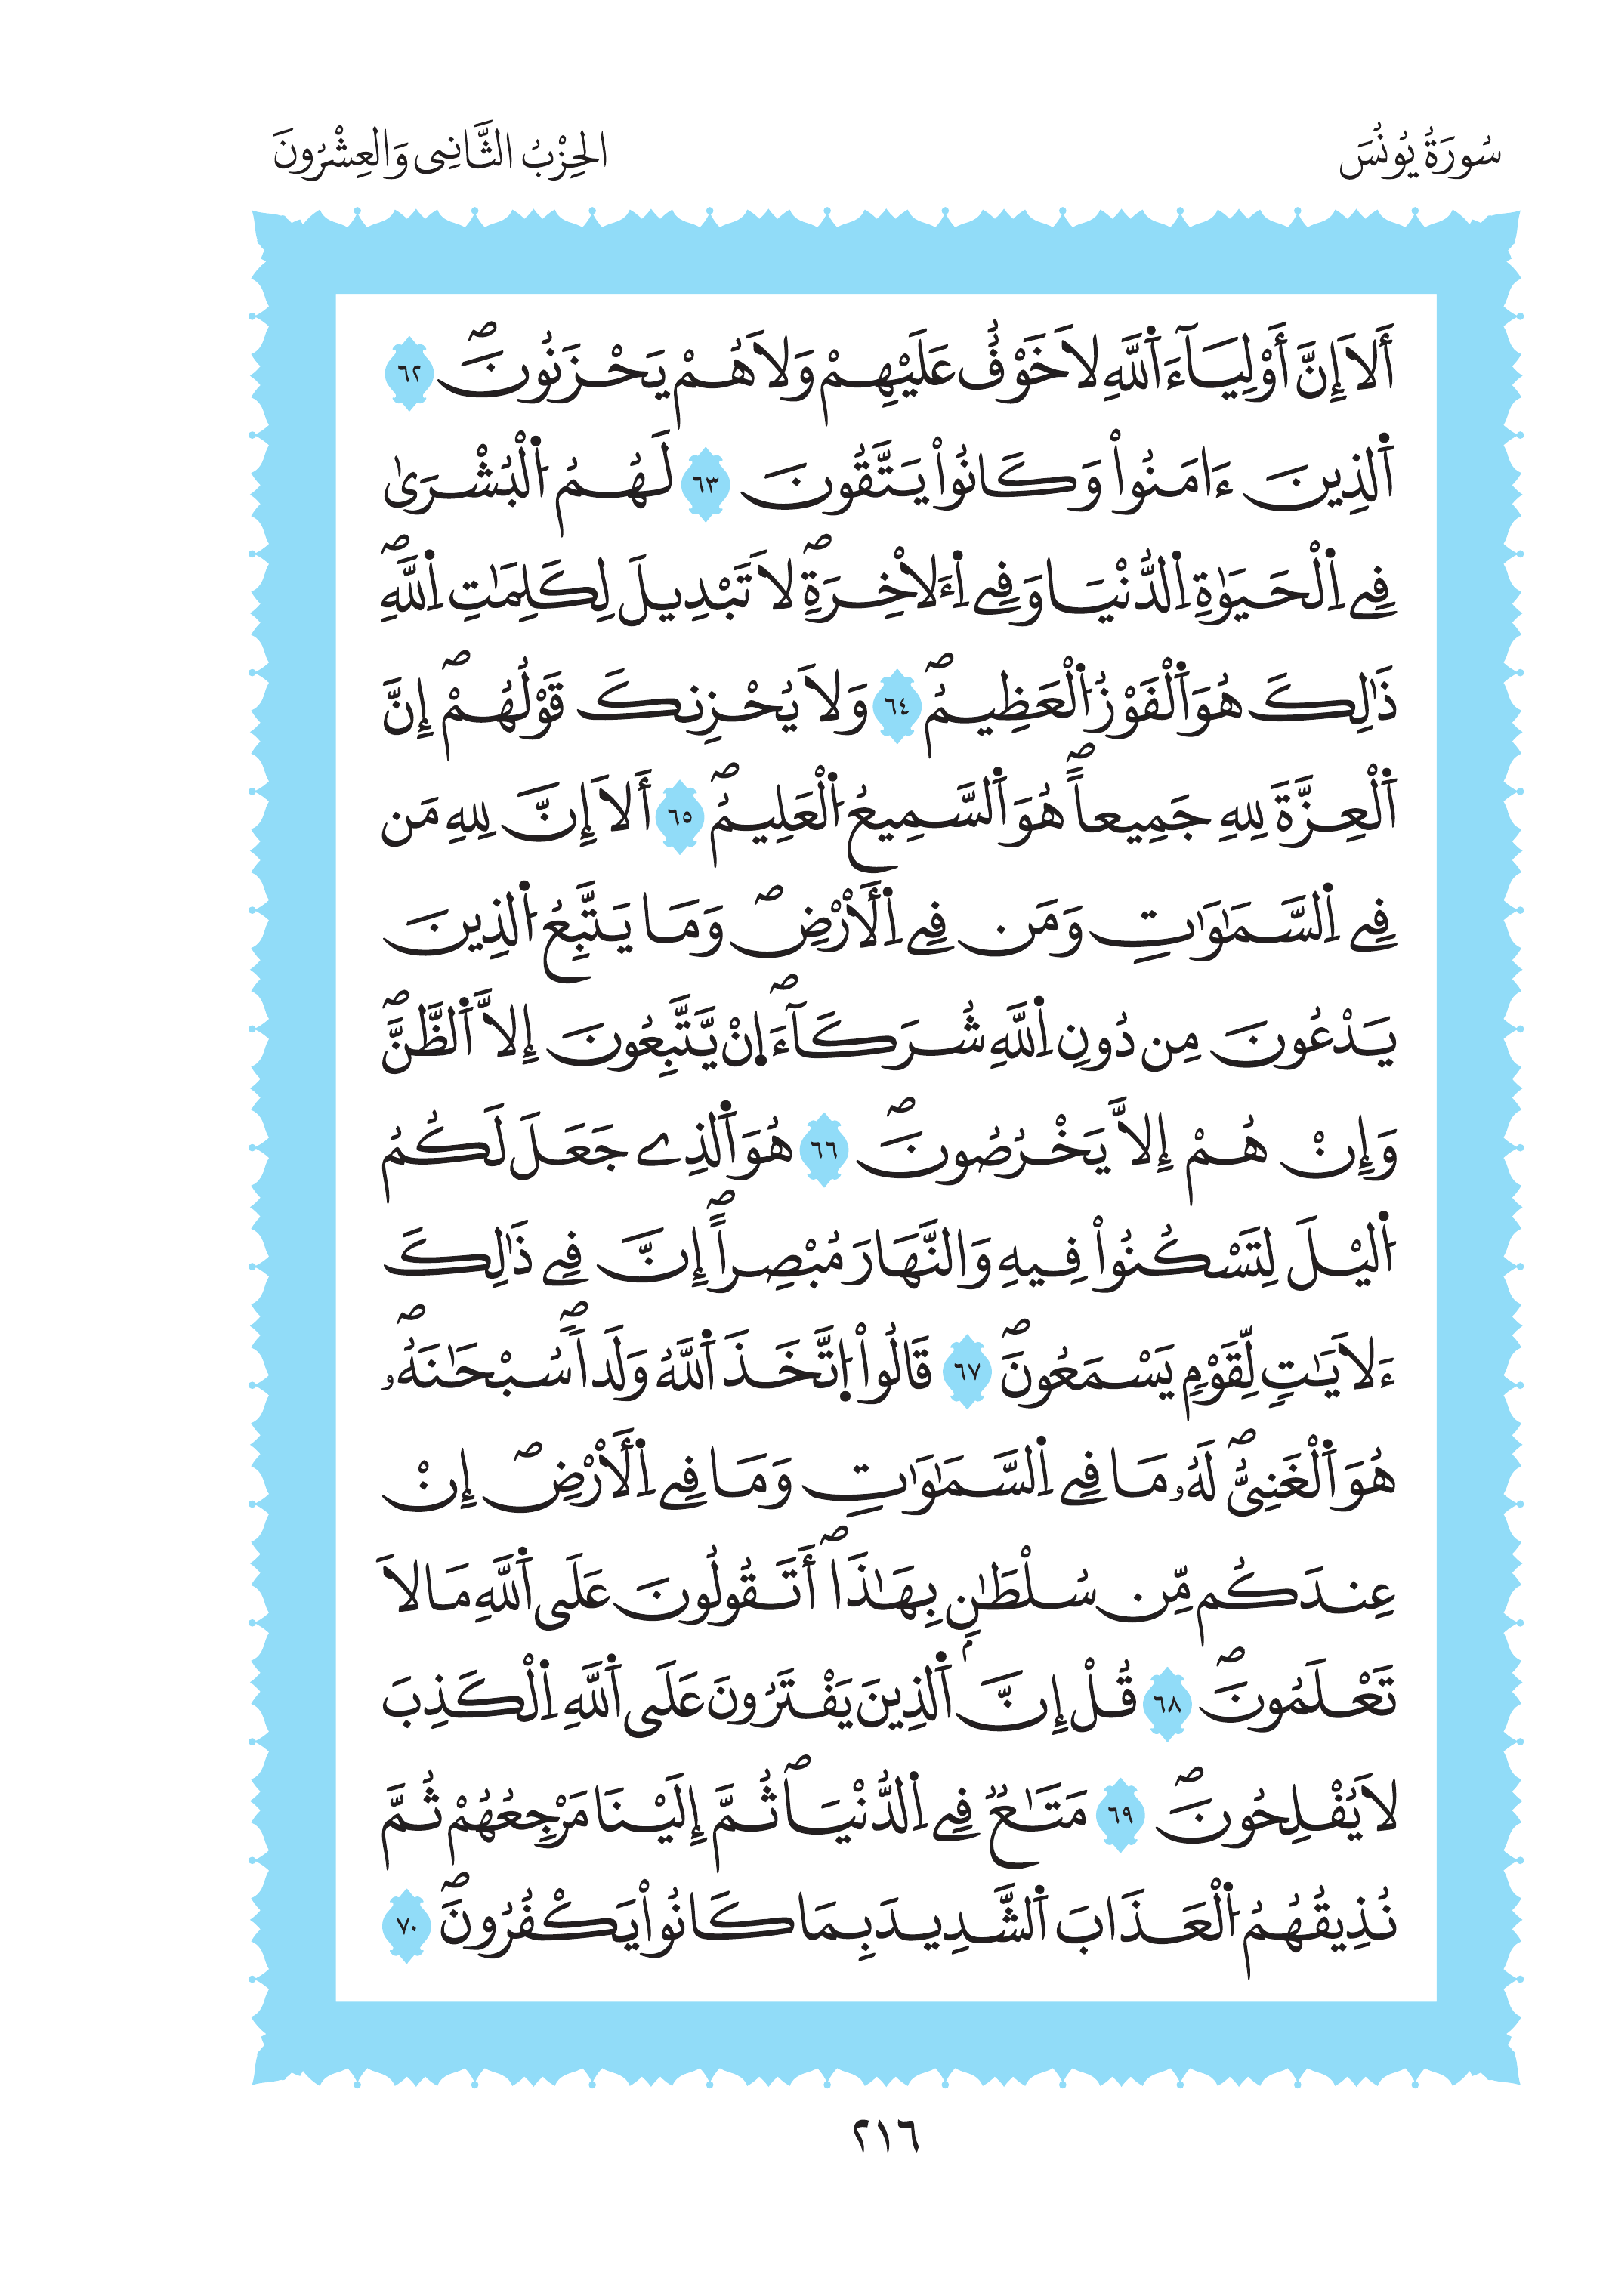 سُورَةُ يُونُسَ
الحِزْبُ الثَّانِى وَالعِشْرُونَ
أَلَا إِنَّ أَوْلِيَآءَ اَ۬للَّهِ لَا خَوْفٌ عَلَيْهِمْ وَلَا هُمْ يَحْزَنُونَۖ ٦٢
اَ۬لذِينَ ءَامَنُواْ وَكَانُواْ يَتَّقُونَ ٦٣ لَهُمُ اُ۬لْبُشْرَىٰ
فِے اِ۬لْحَيَوٰةِ اِ۬لدُّنْيَا وَفِے اِ۬ءَلَاخِرَةِۖ لَا تَبْدِيلَ لِكَلِمَٰتِ اِ۬للَّهِۖ
ذَٰلِكَ هُوَ اَ۬لْفَوْزُ اُ۬لْعَظِيمُۖ ٦٤ وَلَا يُحْزِنكَ قَوْلُهُمْۖ إِنَّ
اَ۬لْعِزَّةَ لِلهِ جَمِيعاًۖ هُوَ اَ۬لسَّمِيعُ اُ۬لْعَلِيمُۖ ٦٥ أَلَا إِنَّ لِلهِ مَن
فِے اِ۬لسَّمَٰوَٰتِ وَمَن فِے اِ۬لَأَرْضِۖ وَمَا يَتَّبِعُ اُ۬لذِينَ
يَدْعُونَ مِن دُونِ اِ۬للَّهِ شُرَكَآءَۖ ا۪نْ يَّتَّبِعُونَ إِلَّا اَ۬لظَّنَّۖ
وَإِنْ هُمْ إِلَّا يَخْرُصُونَۖ ٦٦ هُوَ اَ۬لذِے جَعَلَ لَكُمُ
اُ۬ليْلَ لِتَسْكُنُواْ فِيهِ وَالنَّهَارَ مُبْصِراًۖ إِنَّ فِے ذَٰلِكَ
ءَلَايَٰتٍ لِّقَوْمٍ يَسْمَعُونَۖ ٦٧ قَالُواْ ا۪تَّخَذَ اَ۬للَّهُ وَلَداًۖ سُبْحَٰنَهُۥۖ
هُوَ اَ۬لْغَنِىُّۖ لَهُۥ مَا فِے اِ۬لسَّمَٰوَٰتِ وَمَا فِے اِ۬لَأَرْضِۖ إِنْ
عِندَكُم مِّن سُلْطَٰنٍۢ بِهَٰذَاۖ أَتَقُولُونَ عَلَى اَ۬للَّهِ مَا لَا
تَعْلَمُونَۖ ٦٨ قُلْ إِنَّ اَ۬لذِينَ يَفْتَرُونَ عَلَى اَ۬للَّهِ اِ۬لْكَذِبَ
لَا يُفْلِحُونَۖ ٦٩ مَتَٰعٌ فِے اِ۬لدُّنْيَاۖ ثُمَّ إِلَيْنَا مَرْجِعُهُمْ ثُمَّ
نُذِيقُهُمُ اُ۬لْعَذَابَ اَ۬لشَّدِيدَ بِمَا كَانُواْ يَكْفُرُونَۖ ٧٠
٢١٦